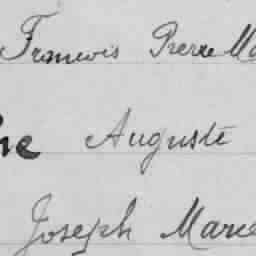 Francois Pierre Ma
ne Auguste
Joseph Marie